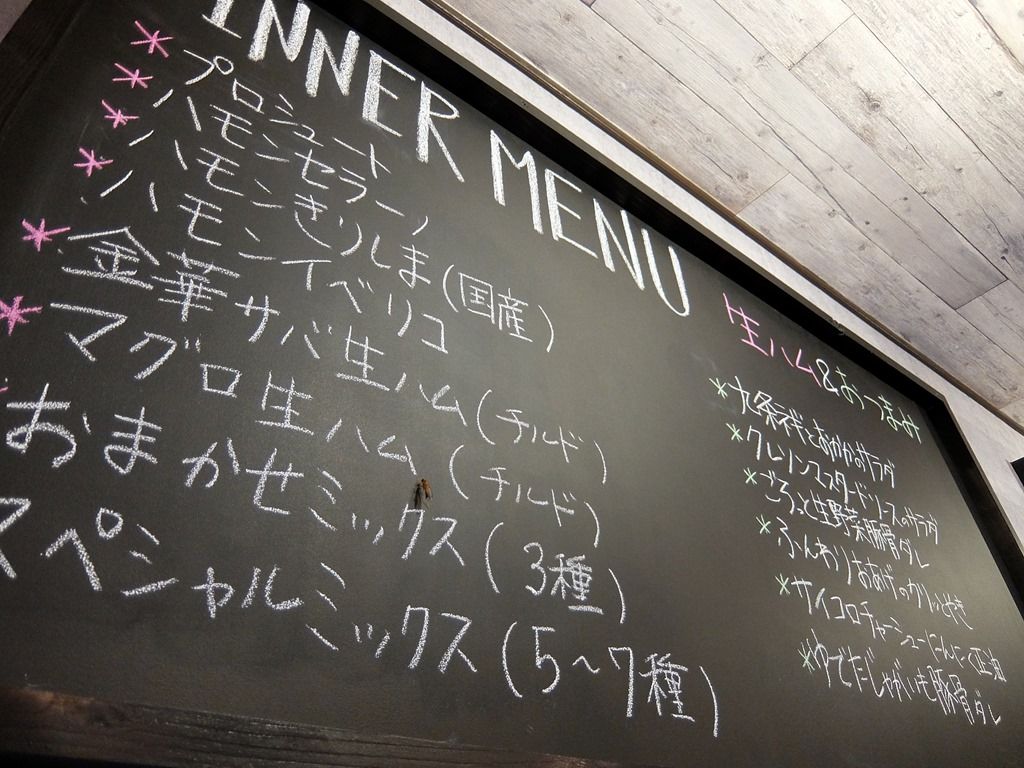 INNER MENU
* プロシュート
* ハモンセラーノ
* ハモンきりしま(国産)
* ハモンイベリコ
* 金華サバ生ハム(チルド)
* マグロ生ハム(チルド)
おまかせミックス(3種)
スペシャルミックス(5～7種)
生ハム&おつまみ
* 九条ネギとあかかのサラダ
* クレソンマスタードソースのサラダ
* ごろっと生野菜豚骨ダレ
* ふんわりおあげのカリッとやき
* サイコロチャーシューにんにく正油
* ゆでだじゃがいも豚骨ダレ